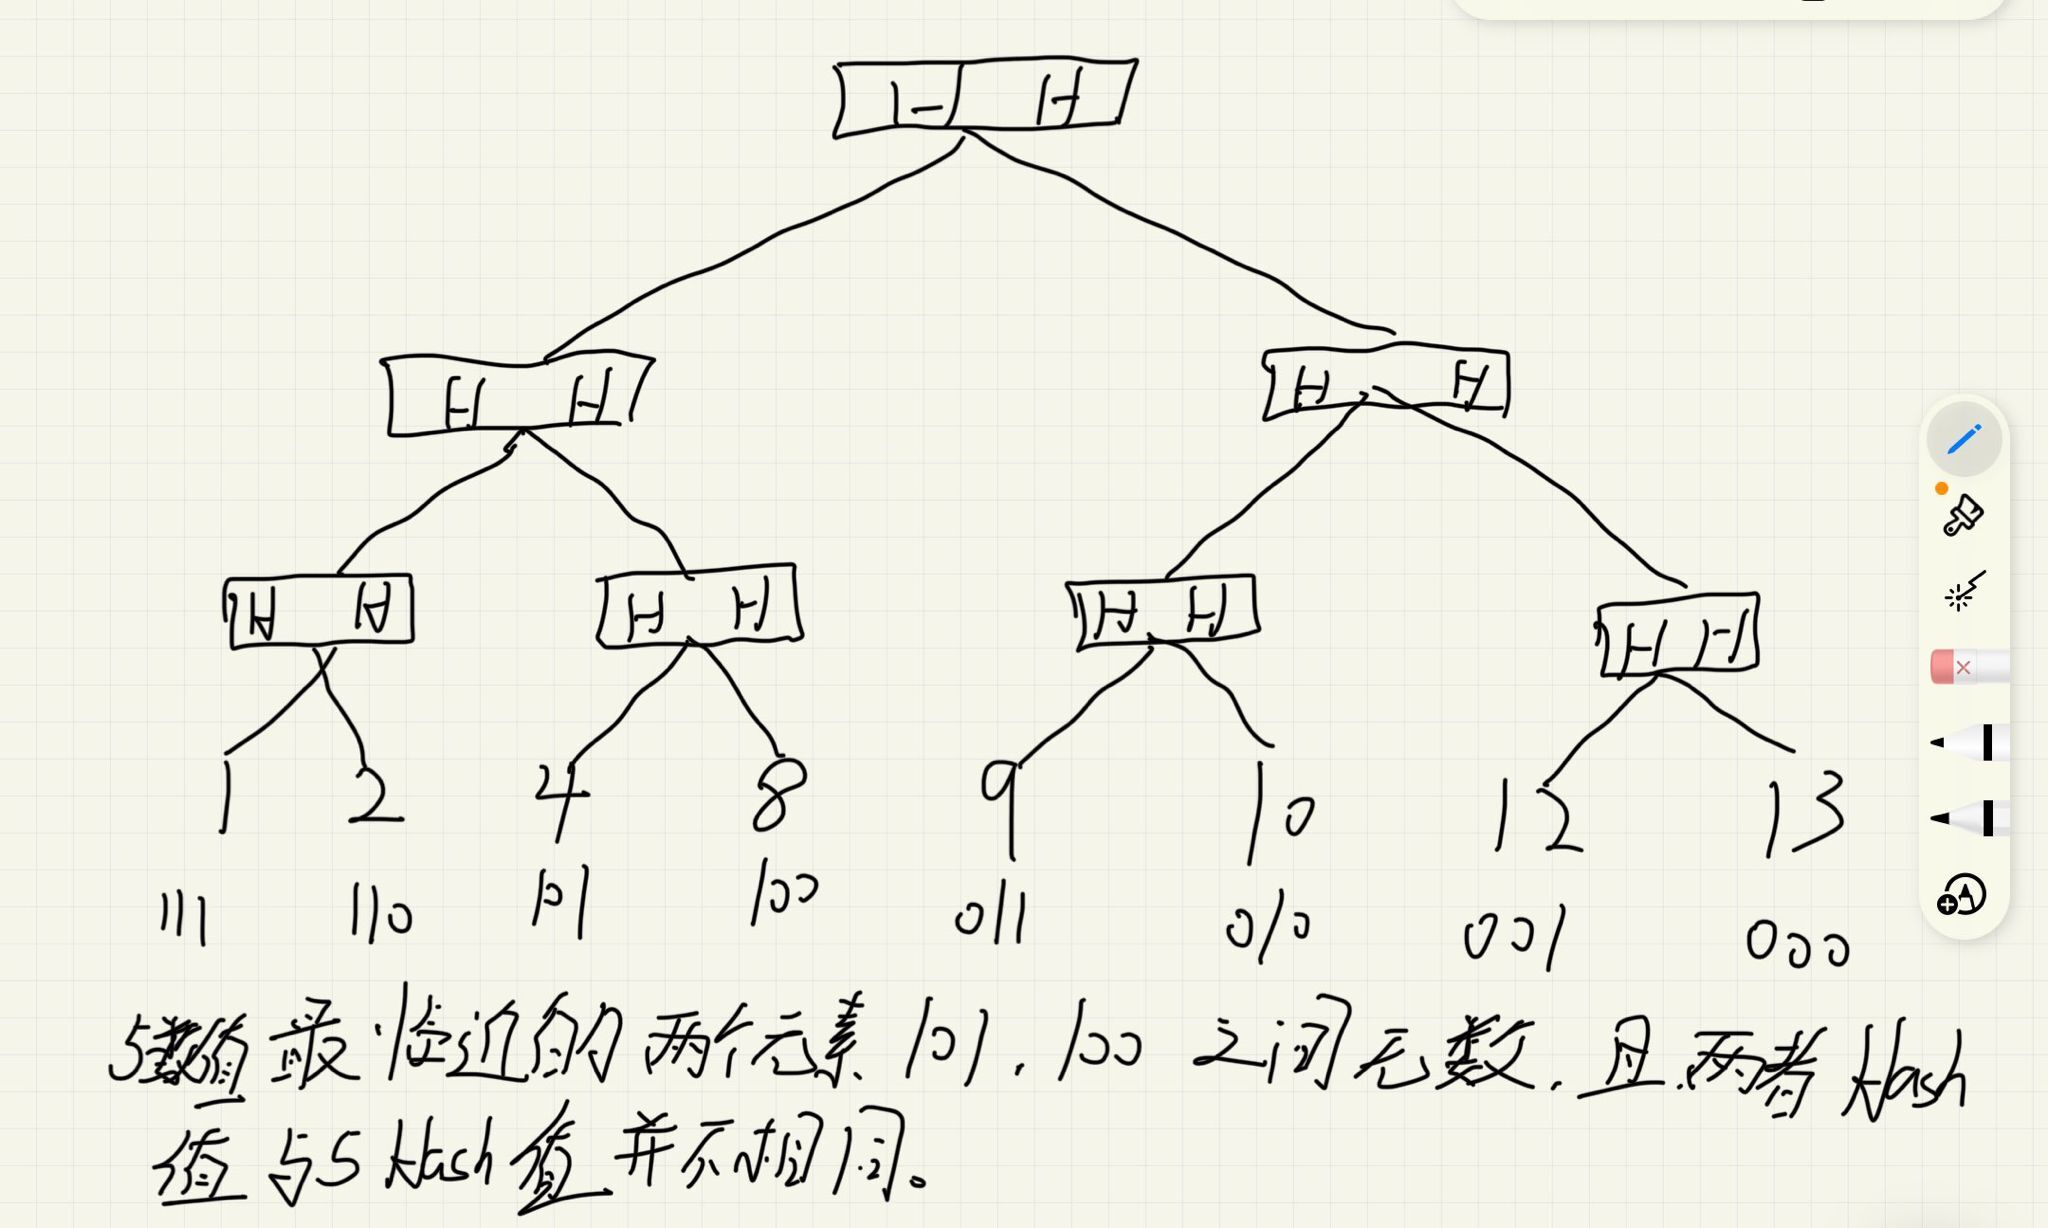 H H
H H
H H
H H
H H
H H
H H
1 2 4 8 9 10 12 13
111 110 101 100 011 010 001 000
5数值最临近的两个元素101,100之间无数.且两者Hash
值与5Hash值并不相同。